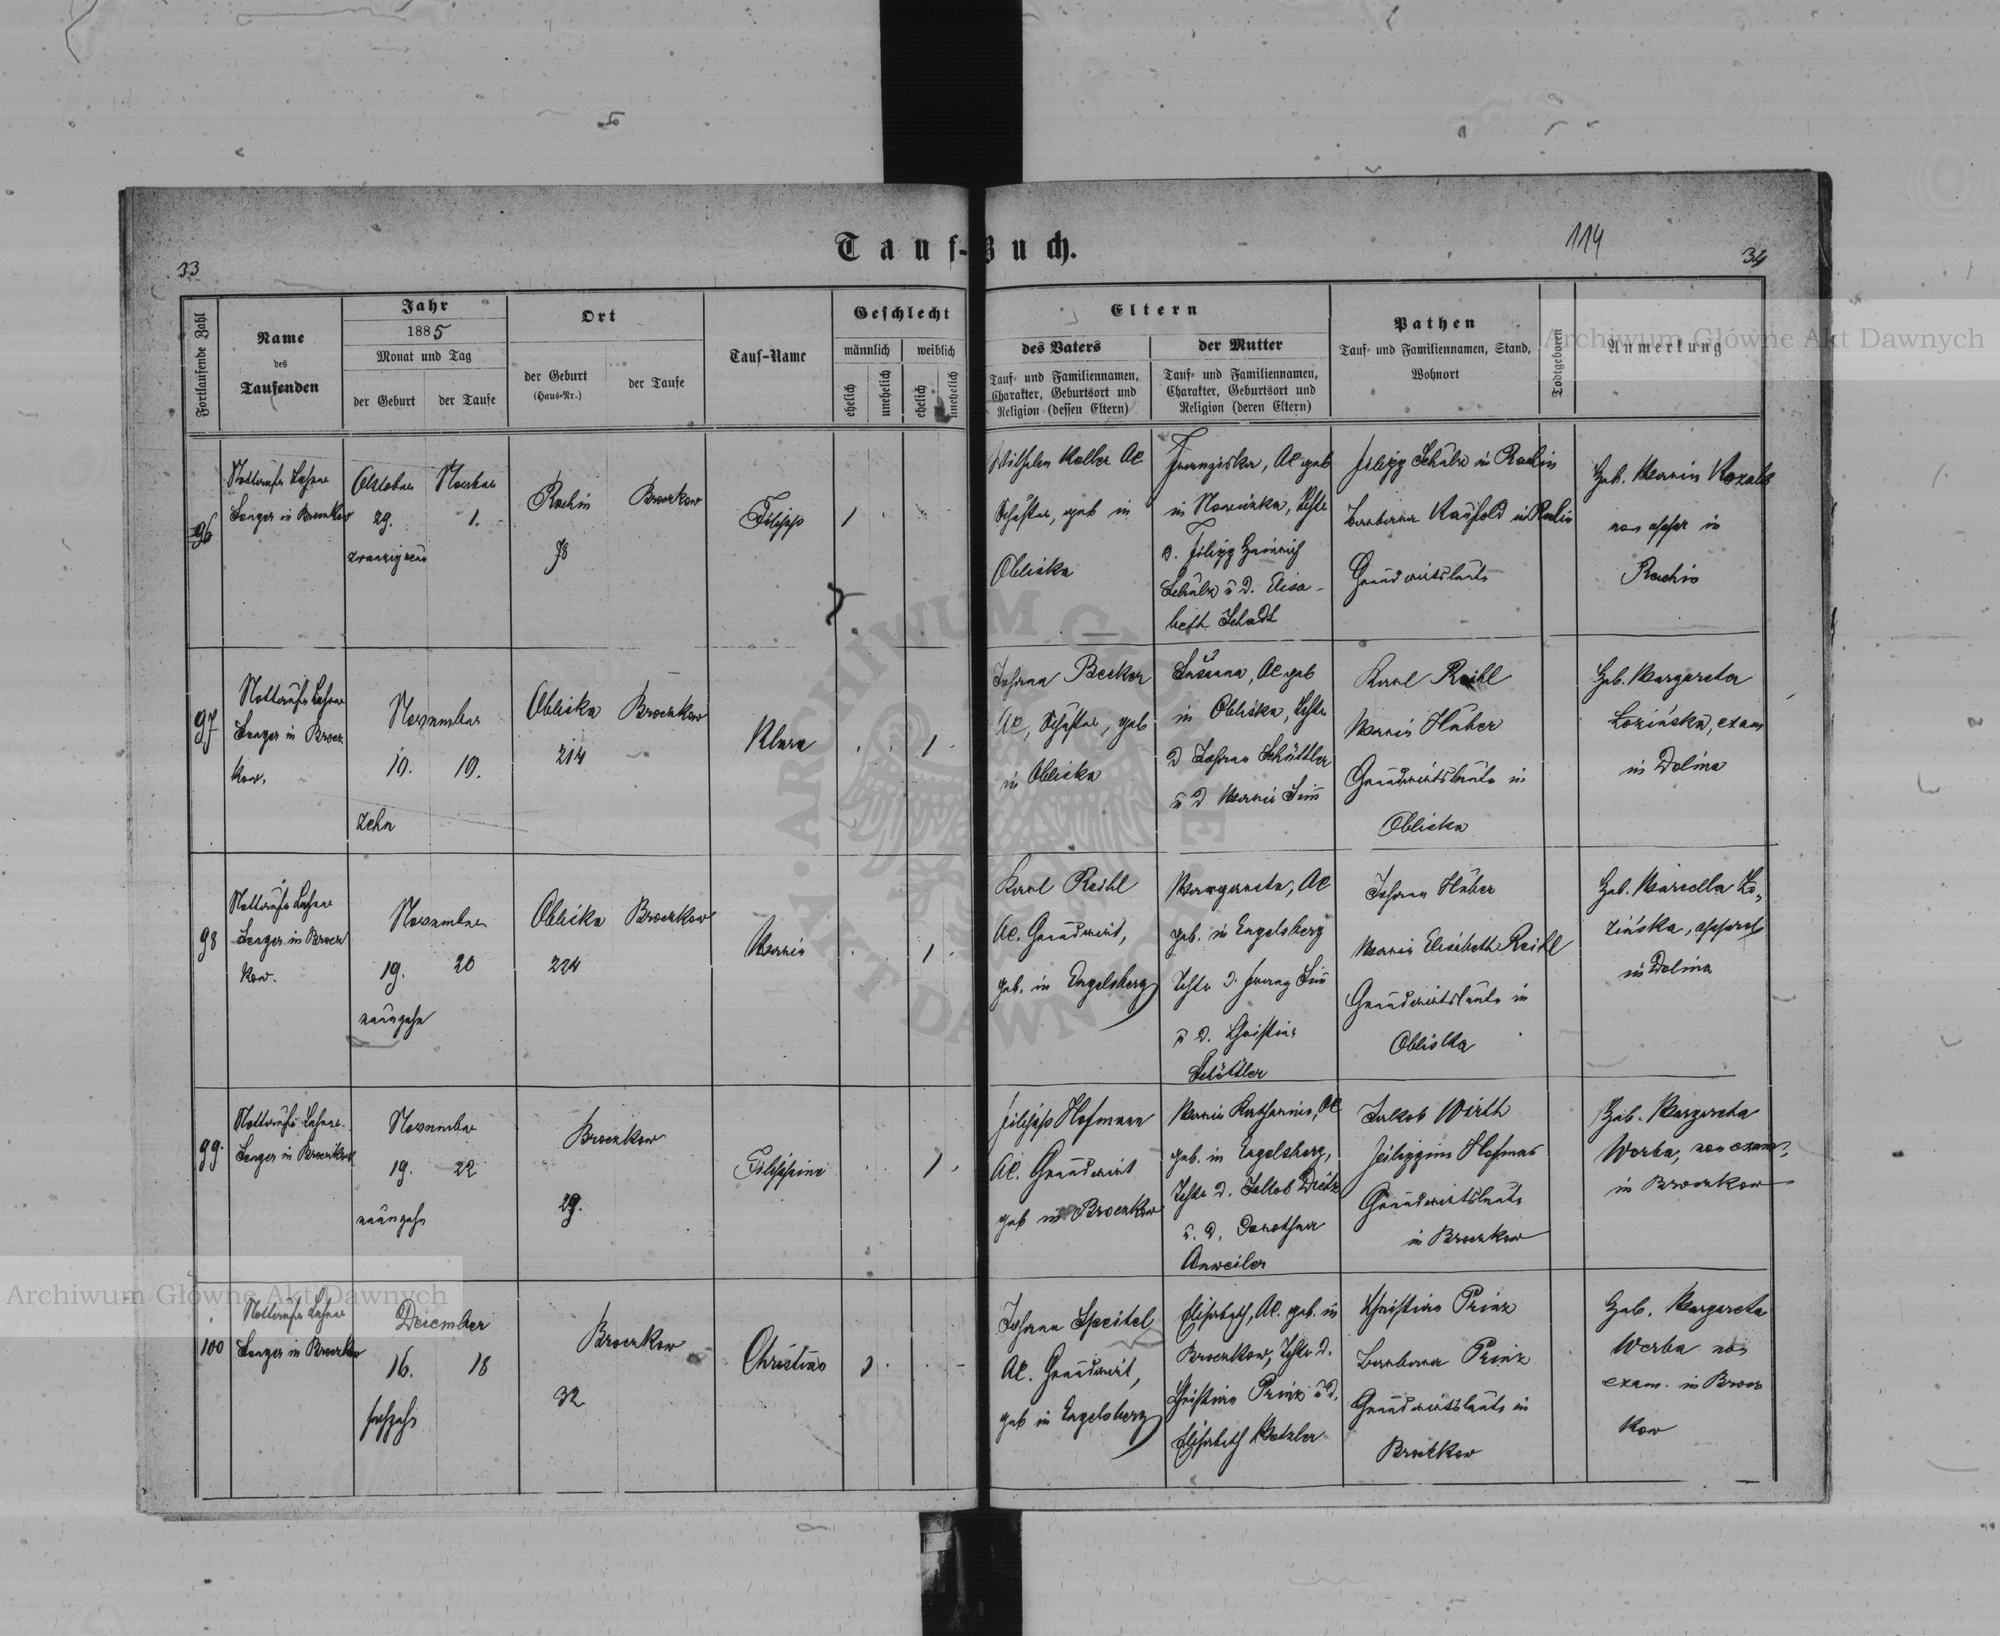 Tauf-Buch.
114
33
34
Fortlaufende Zahl
Name
des
Taufenden
Jahr
1885
Monat und Tag
der Geburt
der Taufe
Ort
der Geburt
(Haus-Nr.)
der Taufe
Tauf-Name
Geschlecht
männlich
weiblich
ehelich
unehelich
ehelich
unehelich
Eltern
des Vaters
Tauf- und Familiennamen,
Charakter, Geburtsort und
Religion (dessen Eltern)
der Mutter
Tauf- und Familiennamen,
Charakter, Geburtsort und
Religion (deren Eltern)
Pathen
Tauf- und Familiennamen, Stand,
Wohnort
Todtgeboren
Anmerkung
Archiwum Główne Akt Dawnych
96
Nottaufe Lehrer
Senger in Broczkow
October
29.
November
1.
Rachin
78
Broczkow
Filipp
1
Wilhelm Koller AC
geb in
Obliska
Franziska, AC geb
in Nowiczka, Tchtr
d. Filipp Heinrich
Schulz u d. Elisa-
beth Schadt
Filipp Schulz in Rachin
Barbara Kaufold in Rachin
Grundwirtsleute
Heb. Maria Kozak
in
Rachin
97
Nottaufe Lehrer
Senger in Brocz
kow.
November
10.
10.
zehn
Obliska
214
Broczkow
Klara
1
Johann Becker
AC, geb
in Obliska
Susanna, AC geb
in Obliska, Tchtr
d Johann Schüttler
u d Maria
Karl Reihl
Maria Huber
Grundwirtsleute in
Obliska
Heb. Margareta
Lozińska, exam
in Dolina
98
Nottaufe Lehrer
Senger in Brocz
kow.
November
19.
20
neunzehn
Obliska
224
Broczkow
Maria
1
Karl Reihl
AC. Grundwirt,
geb. in Engelsberg
Margareta, AC
geb. in Engelsberg
Tchtr d. Franz
u d. Christina
Schüttler
Johann Huber
Maria Elisabeth Reihl
Grundwirtsleute in
Obliska
Heb. Marcella Lo-
zińska,
in Dolina
99.
Nottaufe Lehrer
Senger in Broczkow
November
19.
22
neunzehn
Broczkow
29.
Filippina
1
Filipp Hofmann
AC. Grundwirt
geb in Broczkow
Maria Katharina, AC
geb. in Engelsberg,
Tchtr d. Jakob Dietz
u. d. Dorothea
Anweiler
Jakob Wirth
Filippina Hofman
Grundwirtsleute
in Broczkow
Heb. Margareta
Werba, non exam.
in Broczkow
100
Nottaufe Lehrer
Senger in Broczkow
December
16.
18
sechzehn
Broczkow
32
Christian
1
Johann Speitel
AC. Grundwirt,
geb in Engelsberg
Elisabeth, AC. geb. in
Broczkow, Tchtr d.
Christian Prinz u d.
Elisabeth Metzler
Christian Prinz
Barbara Prinz
Grundwirtsleute in
Broczkow
Heb. Margareta
Werba non
exam. in Brocz
kow
Archiwum Główne Akt Dawnych
ARCHIWUM GŁÓWNE AKT DAWNYCH